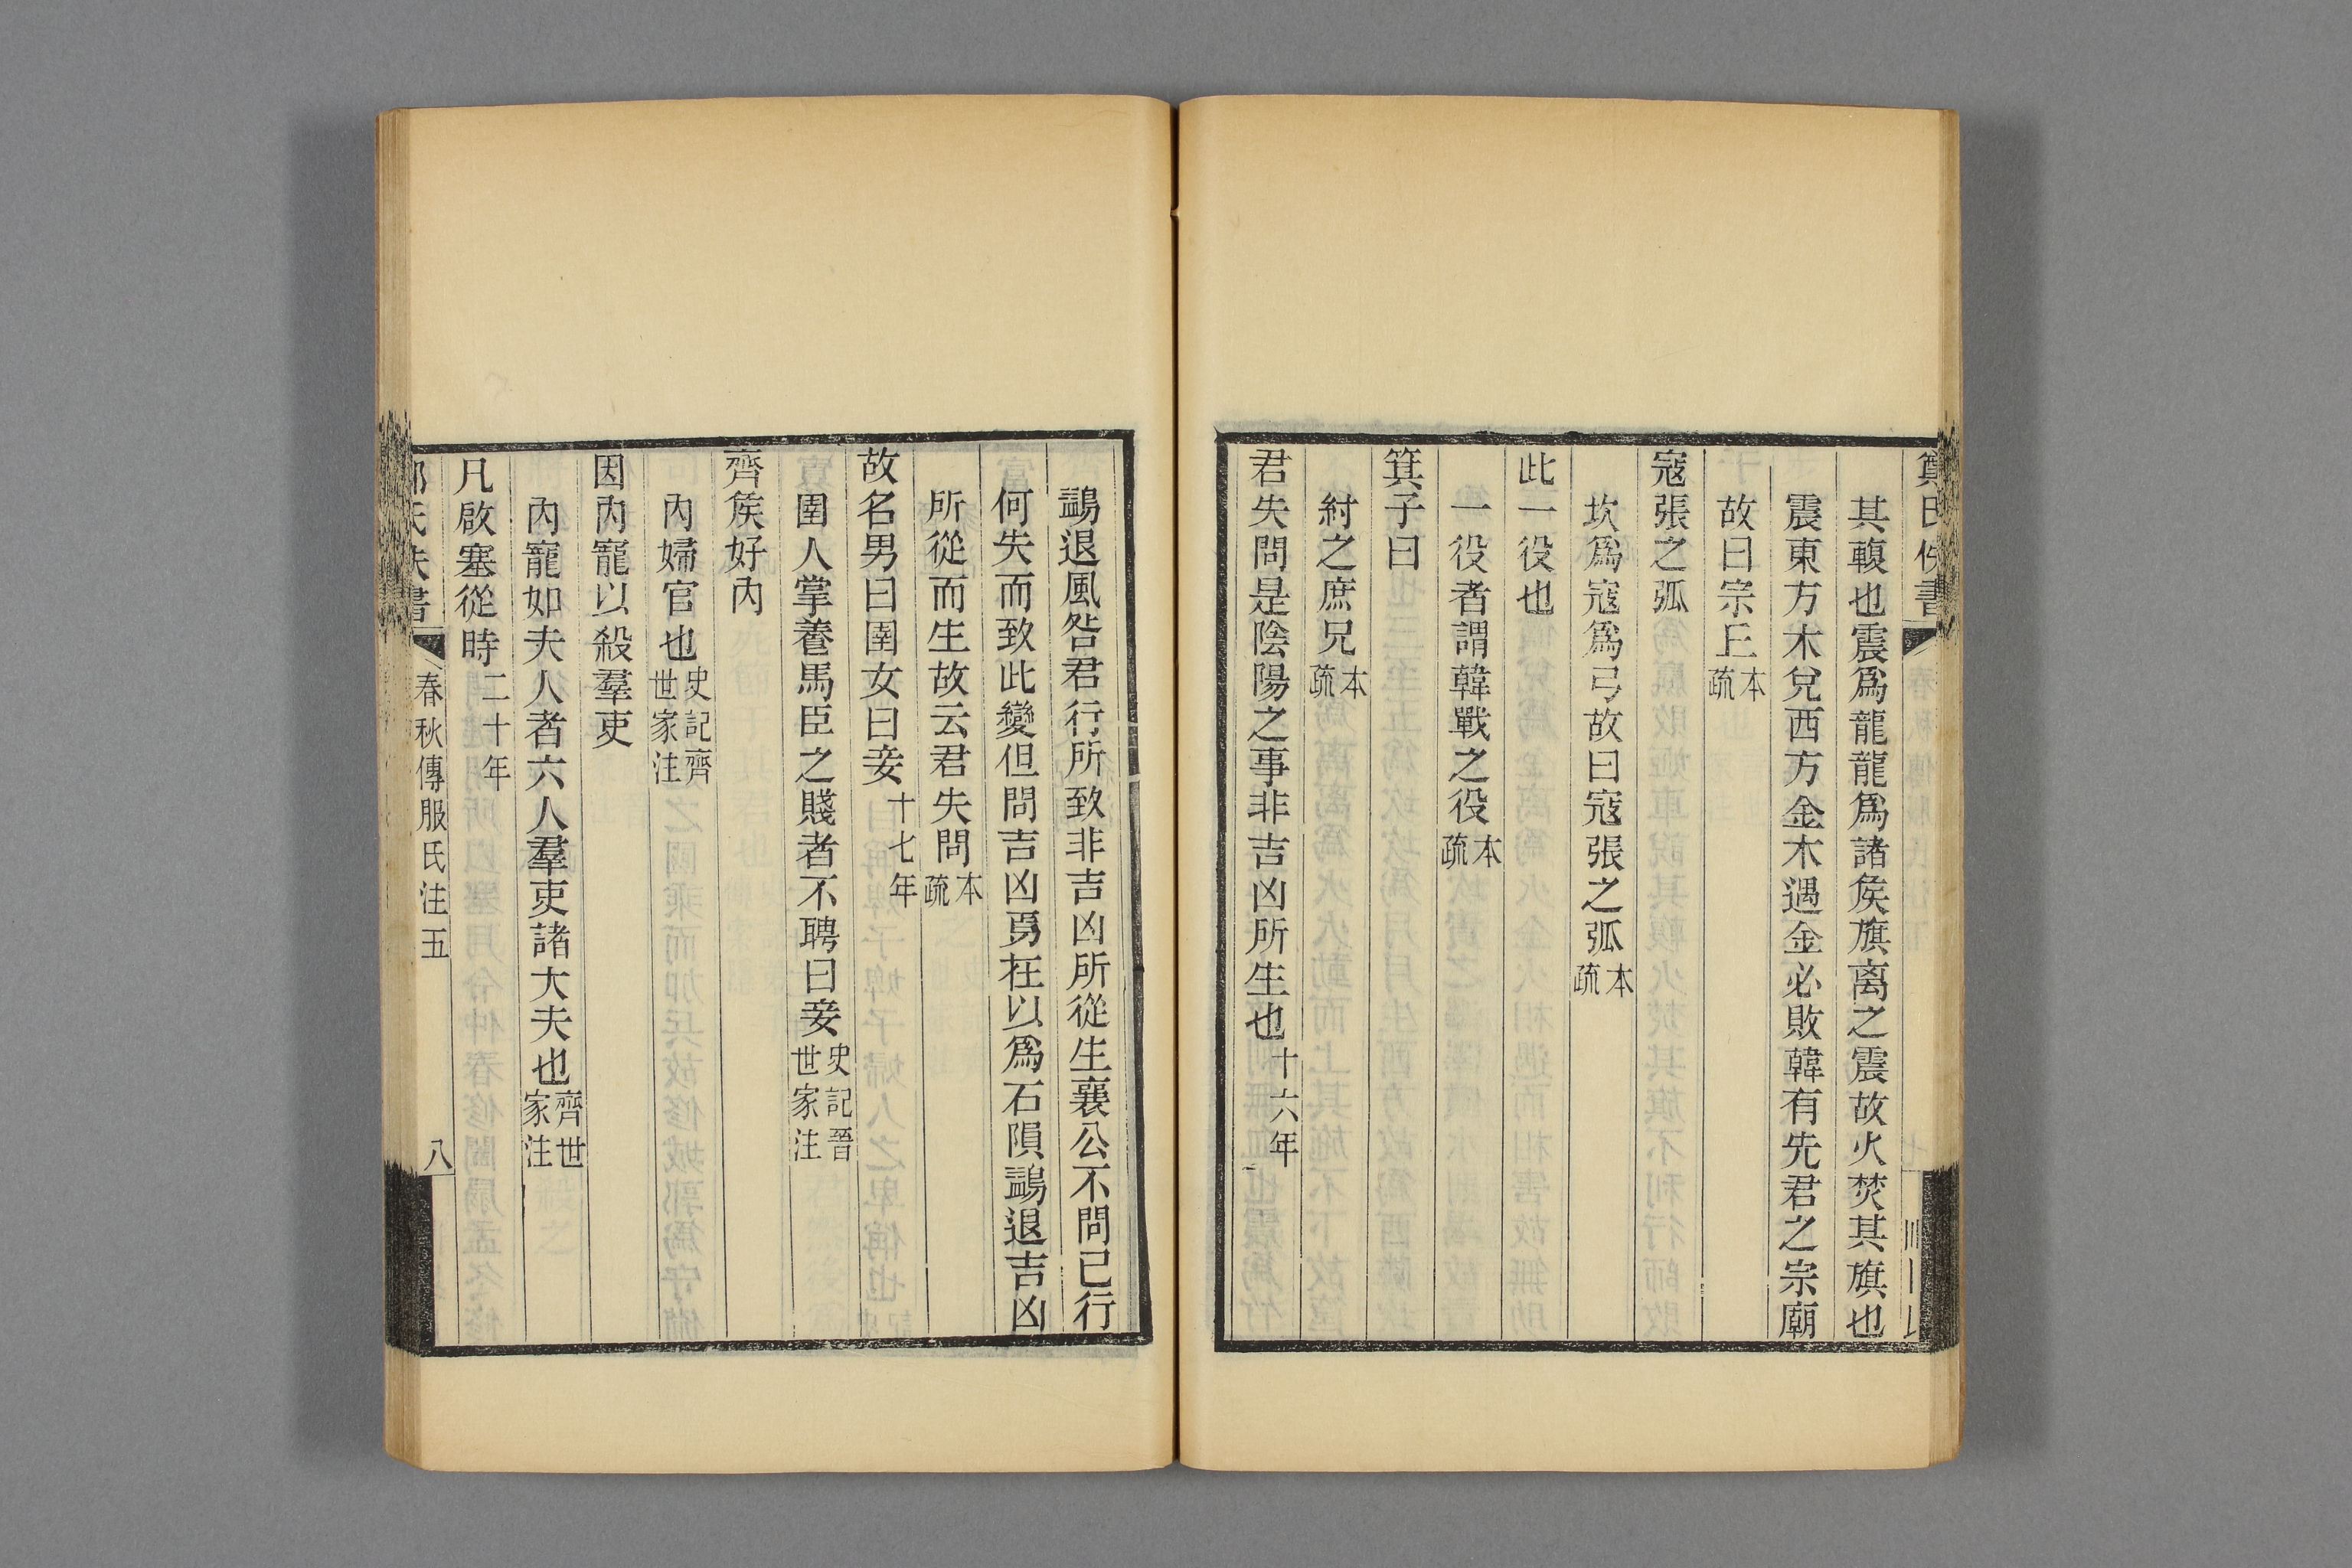 其輹也震爲龍龍爲諸矦旗离之震故火焚其旗也
震東方木兌西方金木遇金必敗韓有先君之宗廟
故曰宗丘本疏
寇張之弧
坎爲寇爲弓故曰寇張之弧本疏
此一役也
一役者謂韓戰之役本疏
箕子曰
紂之庶兄本疏
君失問是陰陽之事非吉凶所生也十六年
鷁退風咎君行所致非吉凶所從生襄公不問己行
何失而致此變但問吉凶焉在以爲石隕鷁退吉凶
所從而生故云君失問本疏
故名男曰圉女曰妾十七年
圉人掌養馬臣之賤者不聘曰妾史記晉世家注
齊矦好內
內婦官也史記齊世家注
因內寵以殺羣吏
內寵如夫人者六人羣吏諸大夫也齊世家注
凡啟塞從時二十年
春秋傳服氏注五
八